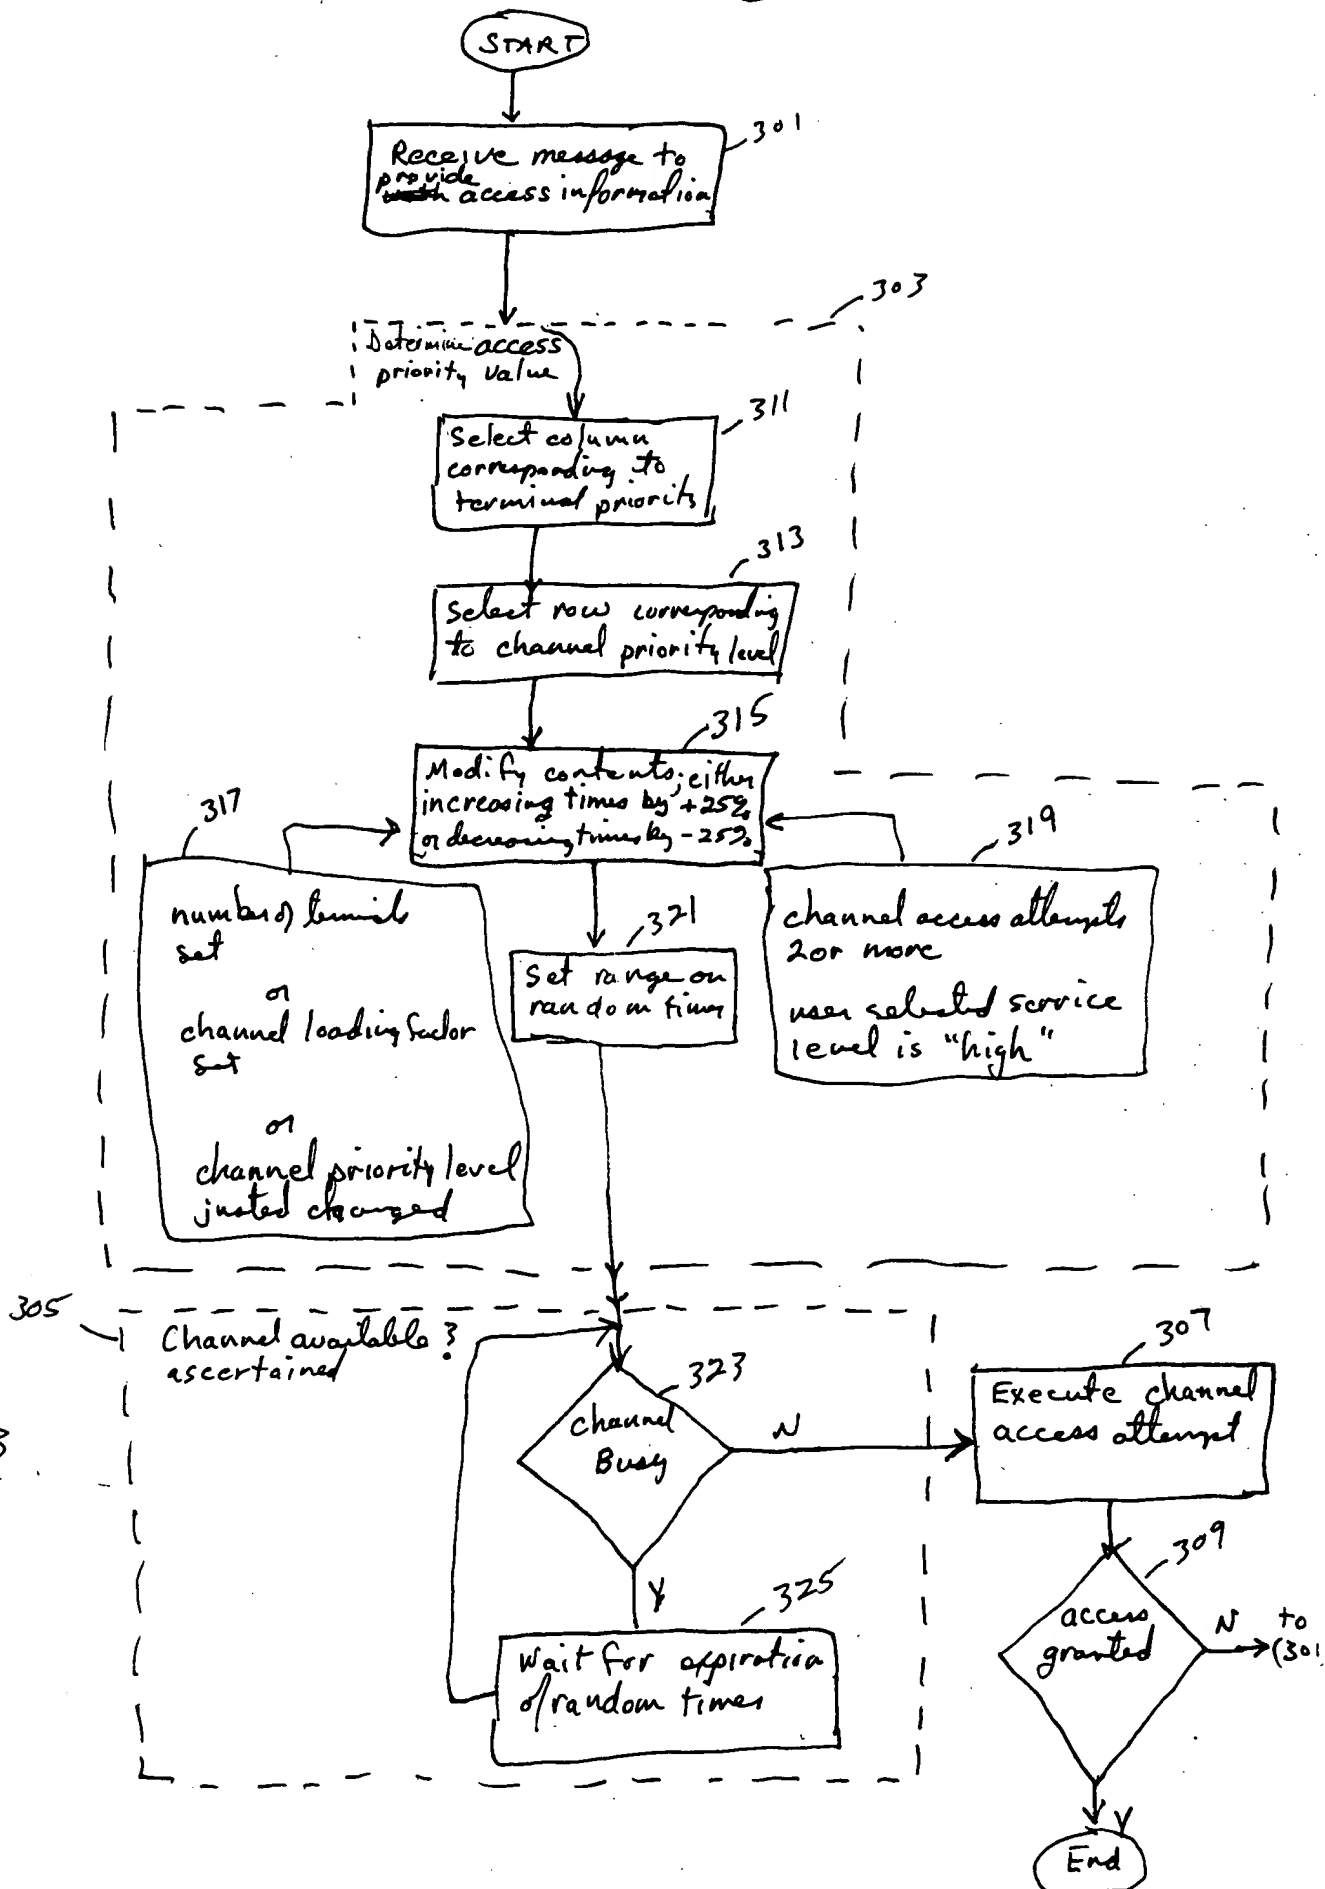 START
301
Receive message to
provide
access information
303
Determine access
priority value
311
Select column
corresponding to
terminal priority
313
Select row corresponding
to channel priority level
315
Modify contents; either
increasing times by +25%
or decreasing times by -25%
317
number of terminals
set
or
channel loading factor
set
or
channel priority level
justed changed
319
channel access attempts
2 or more
user selected service
level is "high"
321
Set range on
random timer
305
Channel available?
ascertained
323
channel
Busy
N
Y
325
Wait for expiration
of random times
307
Execute channel
access attempt
309
access
granted
N
to
(301
Y
End
3